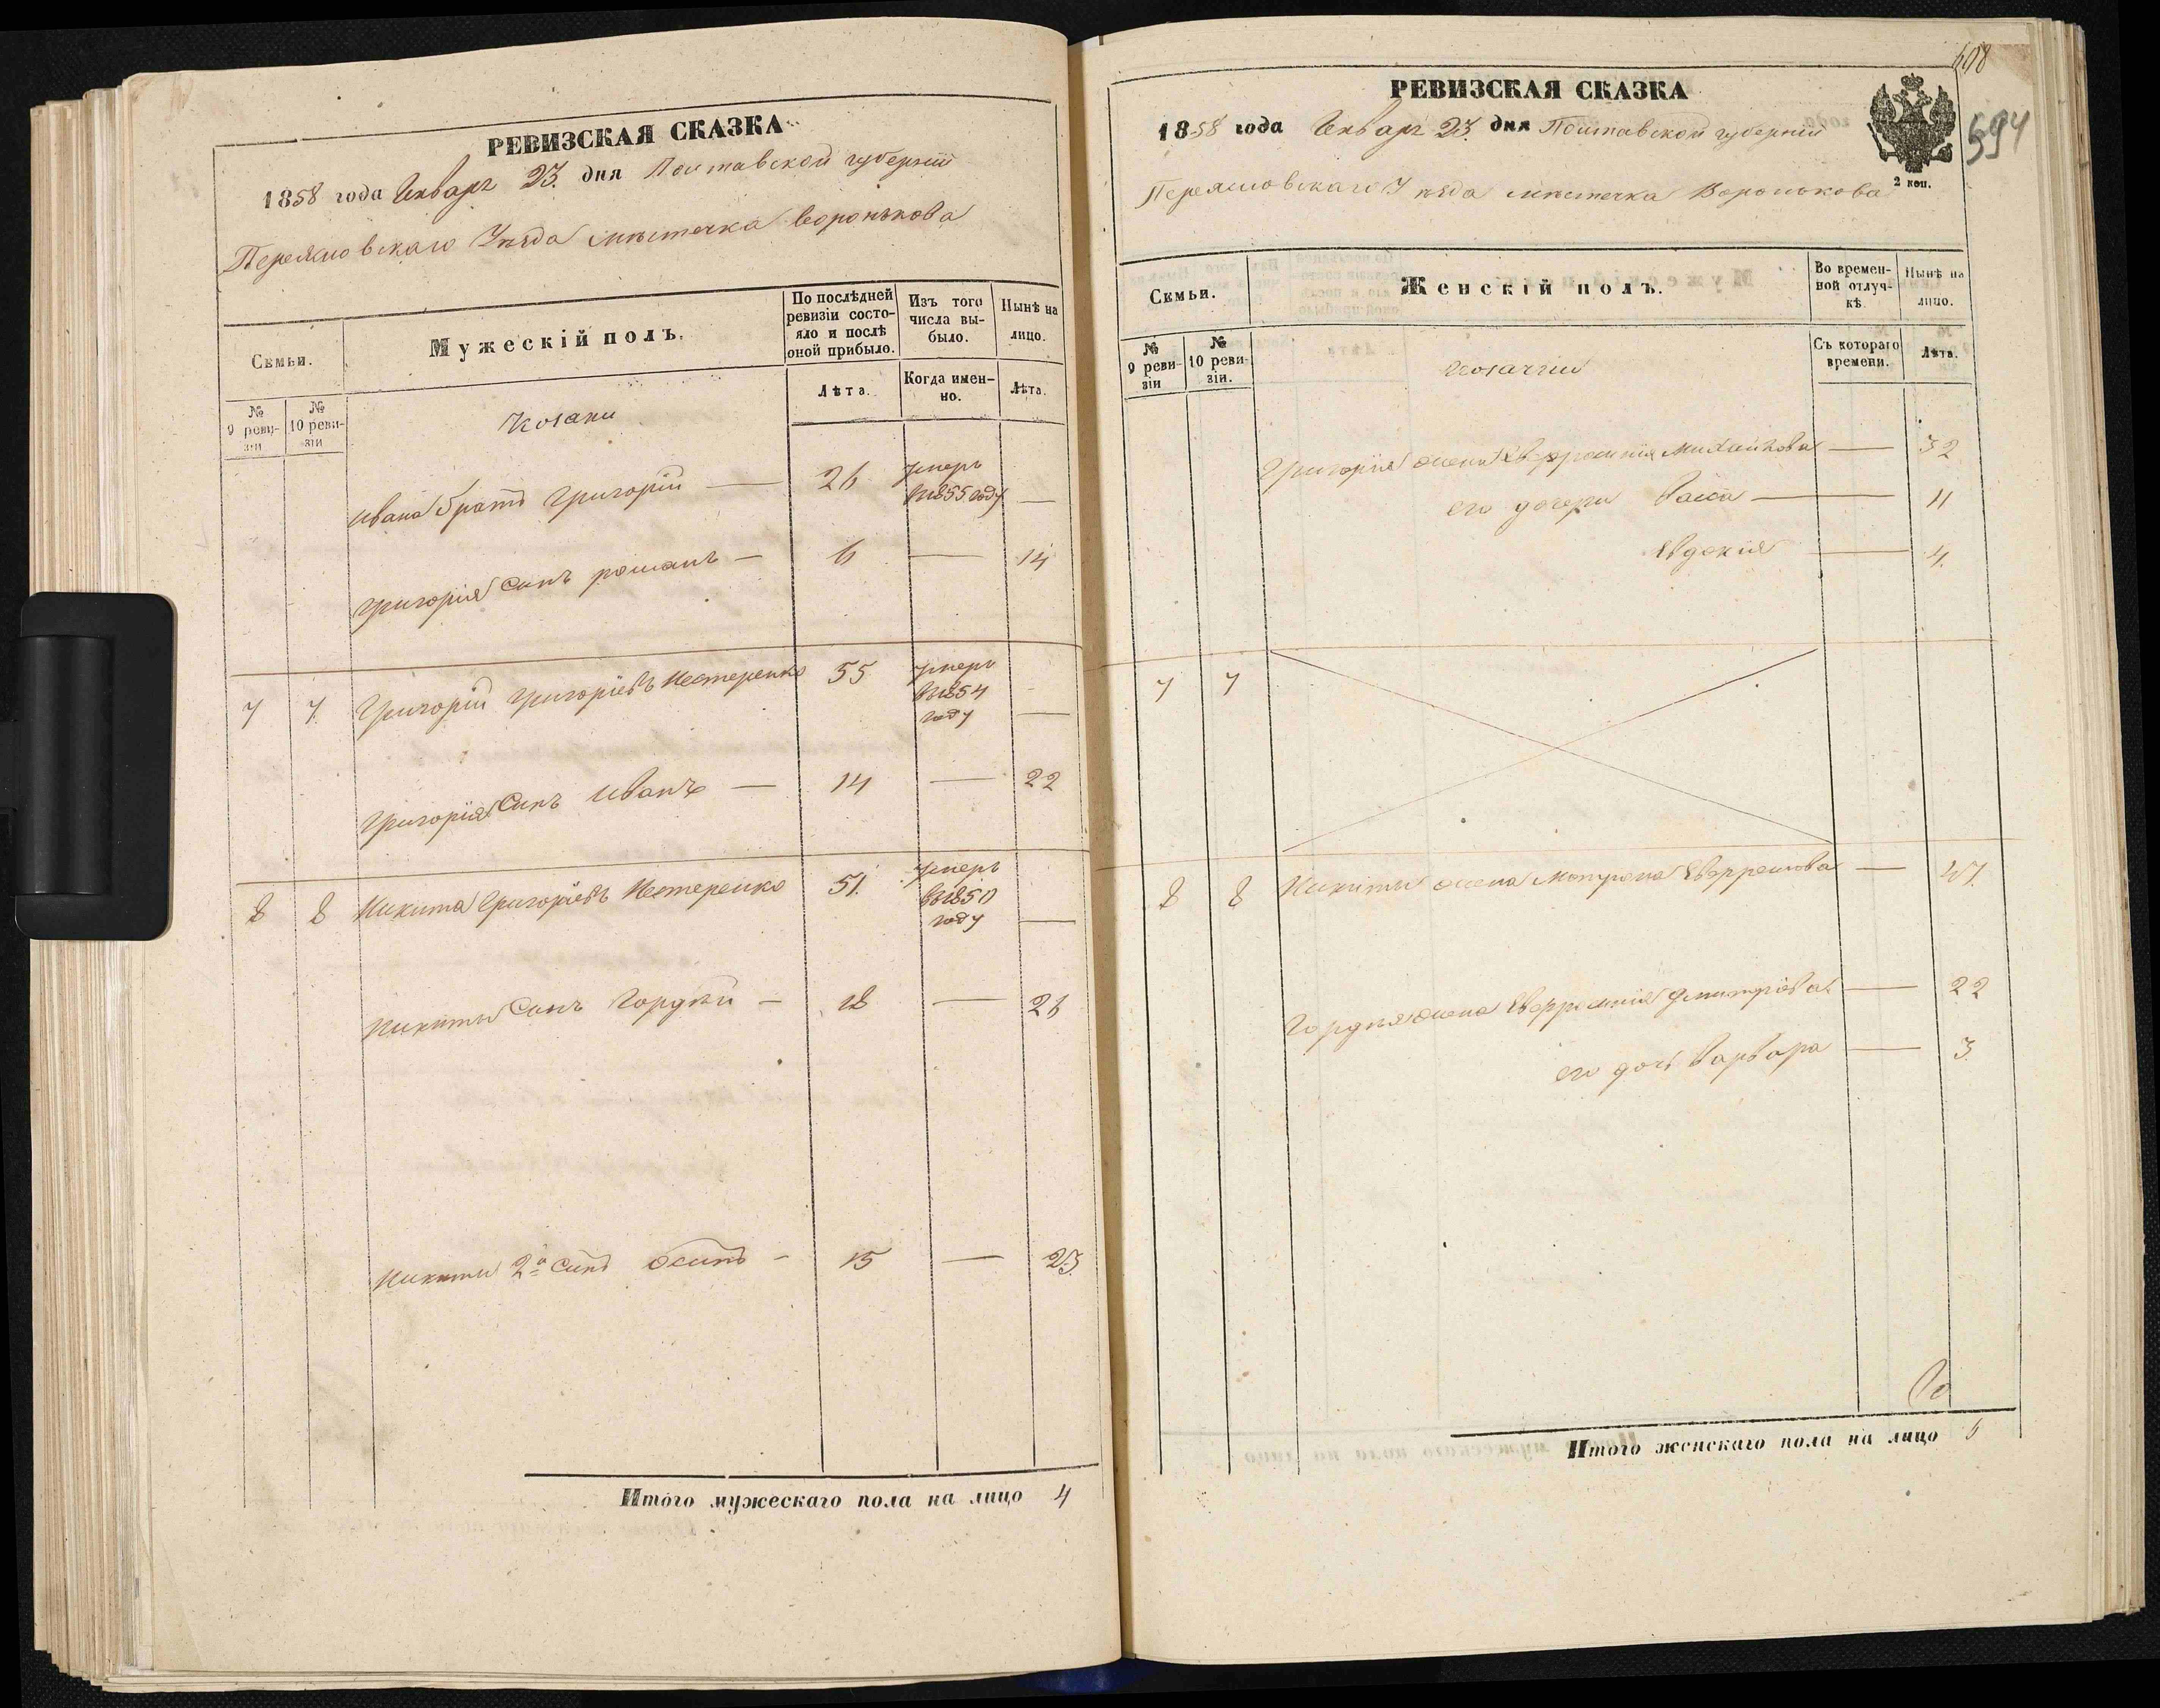 РЕВИЗСКАЯ СКАЗКА
1858 года Января 23. дня Полтавской губернии
Переяславскаго Уѣзда мѣстечка Воронькова
Семьи.
Мужескій полъ.
По послѣдней ревизіи состояло и послѣ оной прибыло.
Изъ того числа выбыло.
Нынѣ на лицо.
№ 9 ревизіи
№ 10 ревизіи
Лѣта.
Когда именно.
Лѣта.
Козаки
Ивана братъ Григорій — 26 умеръ в 1855 году —
Григорія Сынъ романъ — 6 — 14
7 7. Григорій Григоріевъ Нестеренко 55 умеръ в 1854 году —
Григорія Сынъ Иванъ — 14 — 22
8 8 Никита Григоріевъ Нестеренко 51. умеръ в 1850 году —
Никиты Сынъ Гордѣй — 18 — 26
Никиты 2й Сынъ Осипъ — 15 — 23.
Итого мужескаго пола на лицо 4
608
594
РЕВИЗСКАЯ СКАЗКА
1858 года Января 23. дня Полтавской губерніи
2 коп.
Переяславскаго Уѣзда мѣстечка Воронькова
Семьи.
Женскій полъ.
Во временной отлучкѣ.
Нынѣ на лицо.
№ 9 ревизіи
№ 10 ревизіи.
Съ котораго времени.
Лѣта.
Козачки
Григорія жена Евфросинія Михайлова — 32
его дочери Васса — 11
Евдокія — 4.
7 7
8 8 Никиты жена Мотрона Ефремова — 47.
Гордѣя жена Евфросинія Дмитріева — 22
его дочь Варвара — 3.
Итого женскаго пола на лицо 6